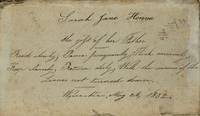 Sarah Jane
the gift of her Father
Read slowly, Pause frequently, Think seriously,
Keep cleanly, Return duly, With the corners of the
Leaves not turned down.
May 1852